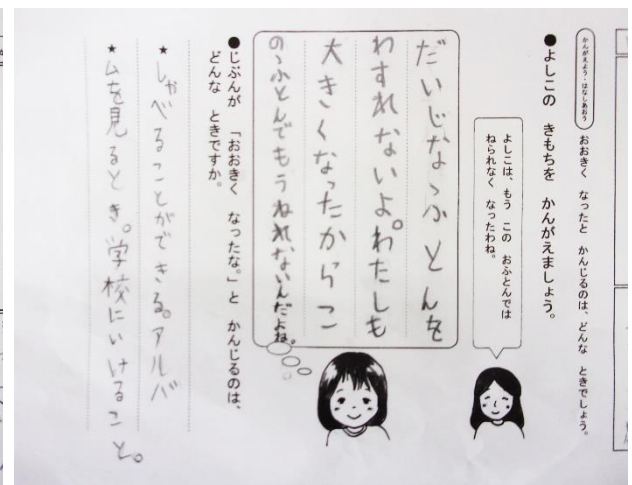 かんがえよう・はなしあおう
おおきく なったと かんじるのは、どんな ときでしょう。
●よしこの きもちを かんがえましょう。
よしこは、もう この おふとんでは
ねられなく なったわね。
だいじなふとんを
わすれないよ。わたしも
大きくなったからこ
のふとんでもうねれないんだよね。
●じぶんが 「おおきく なったな。」と かんじるのは、
どんな ときですか。
★しゃべることができる。アルバ
★ムを見るとき。学校にいけること。